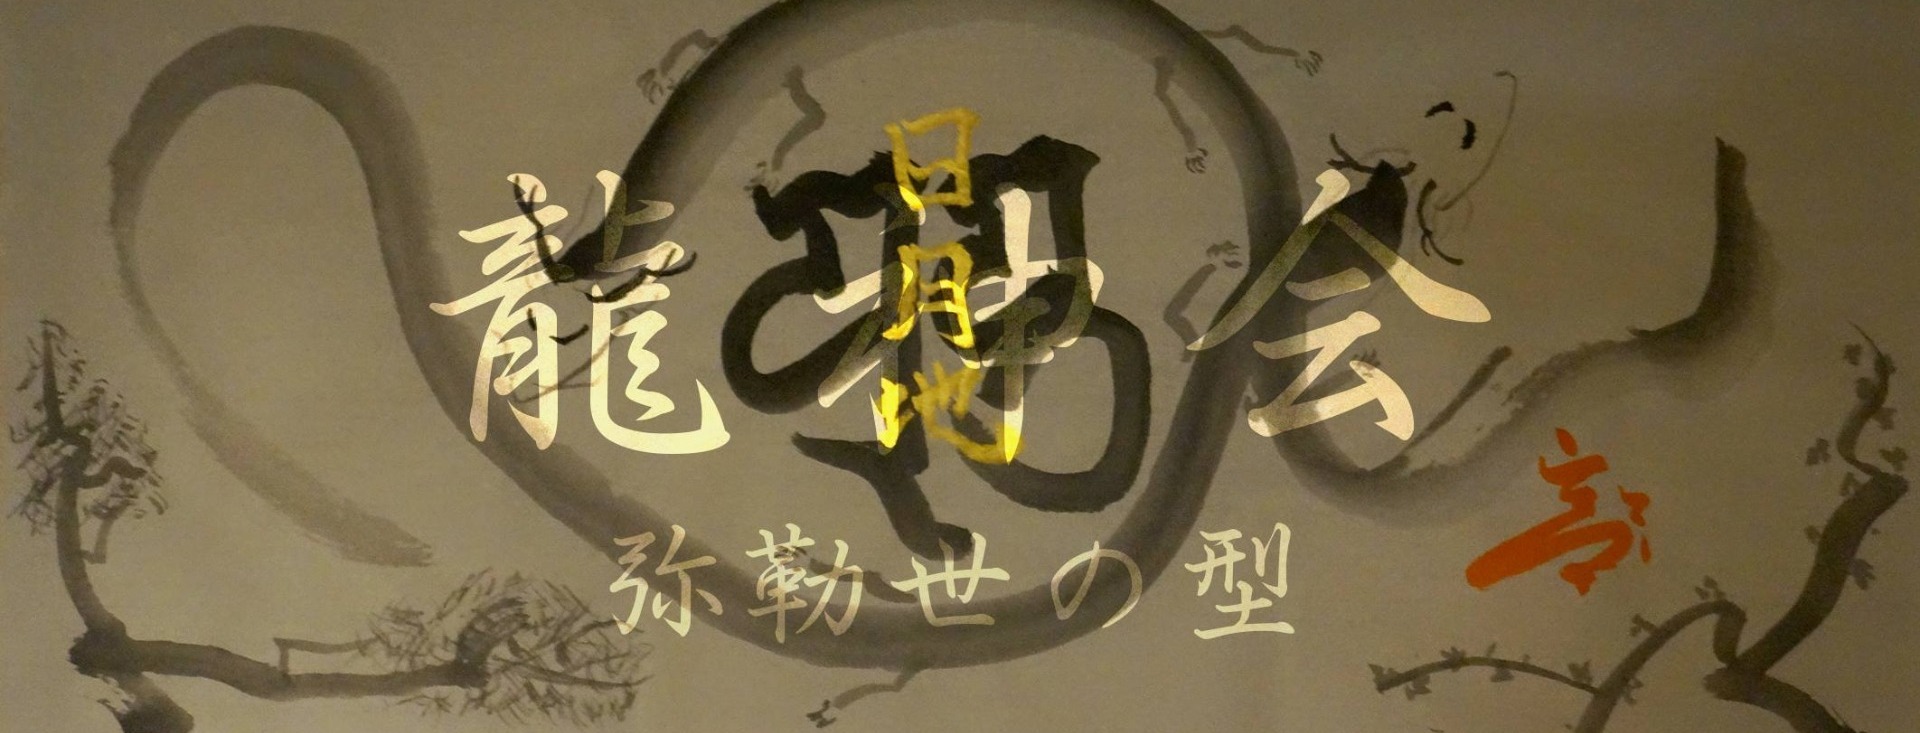 日月地
龍神会
弥勒世の型